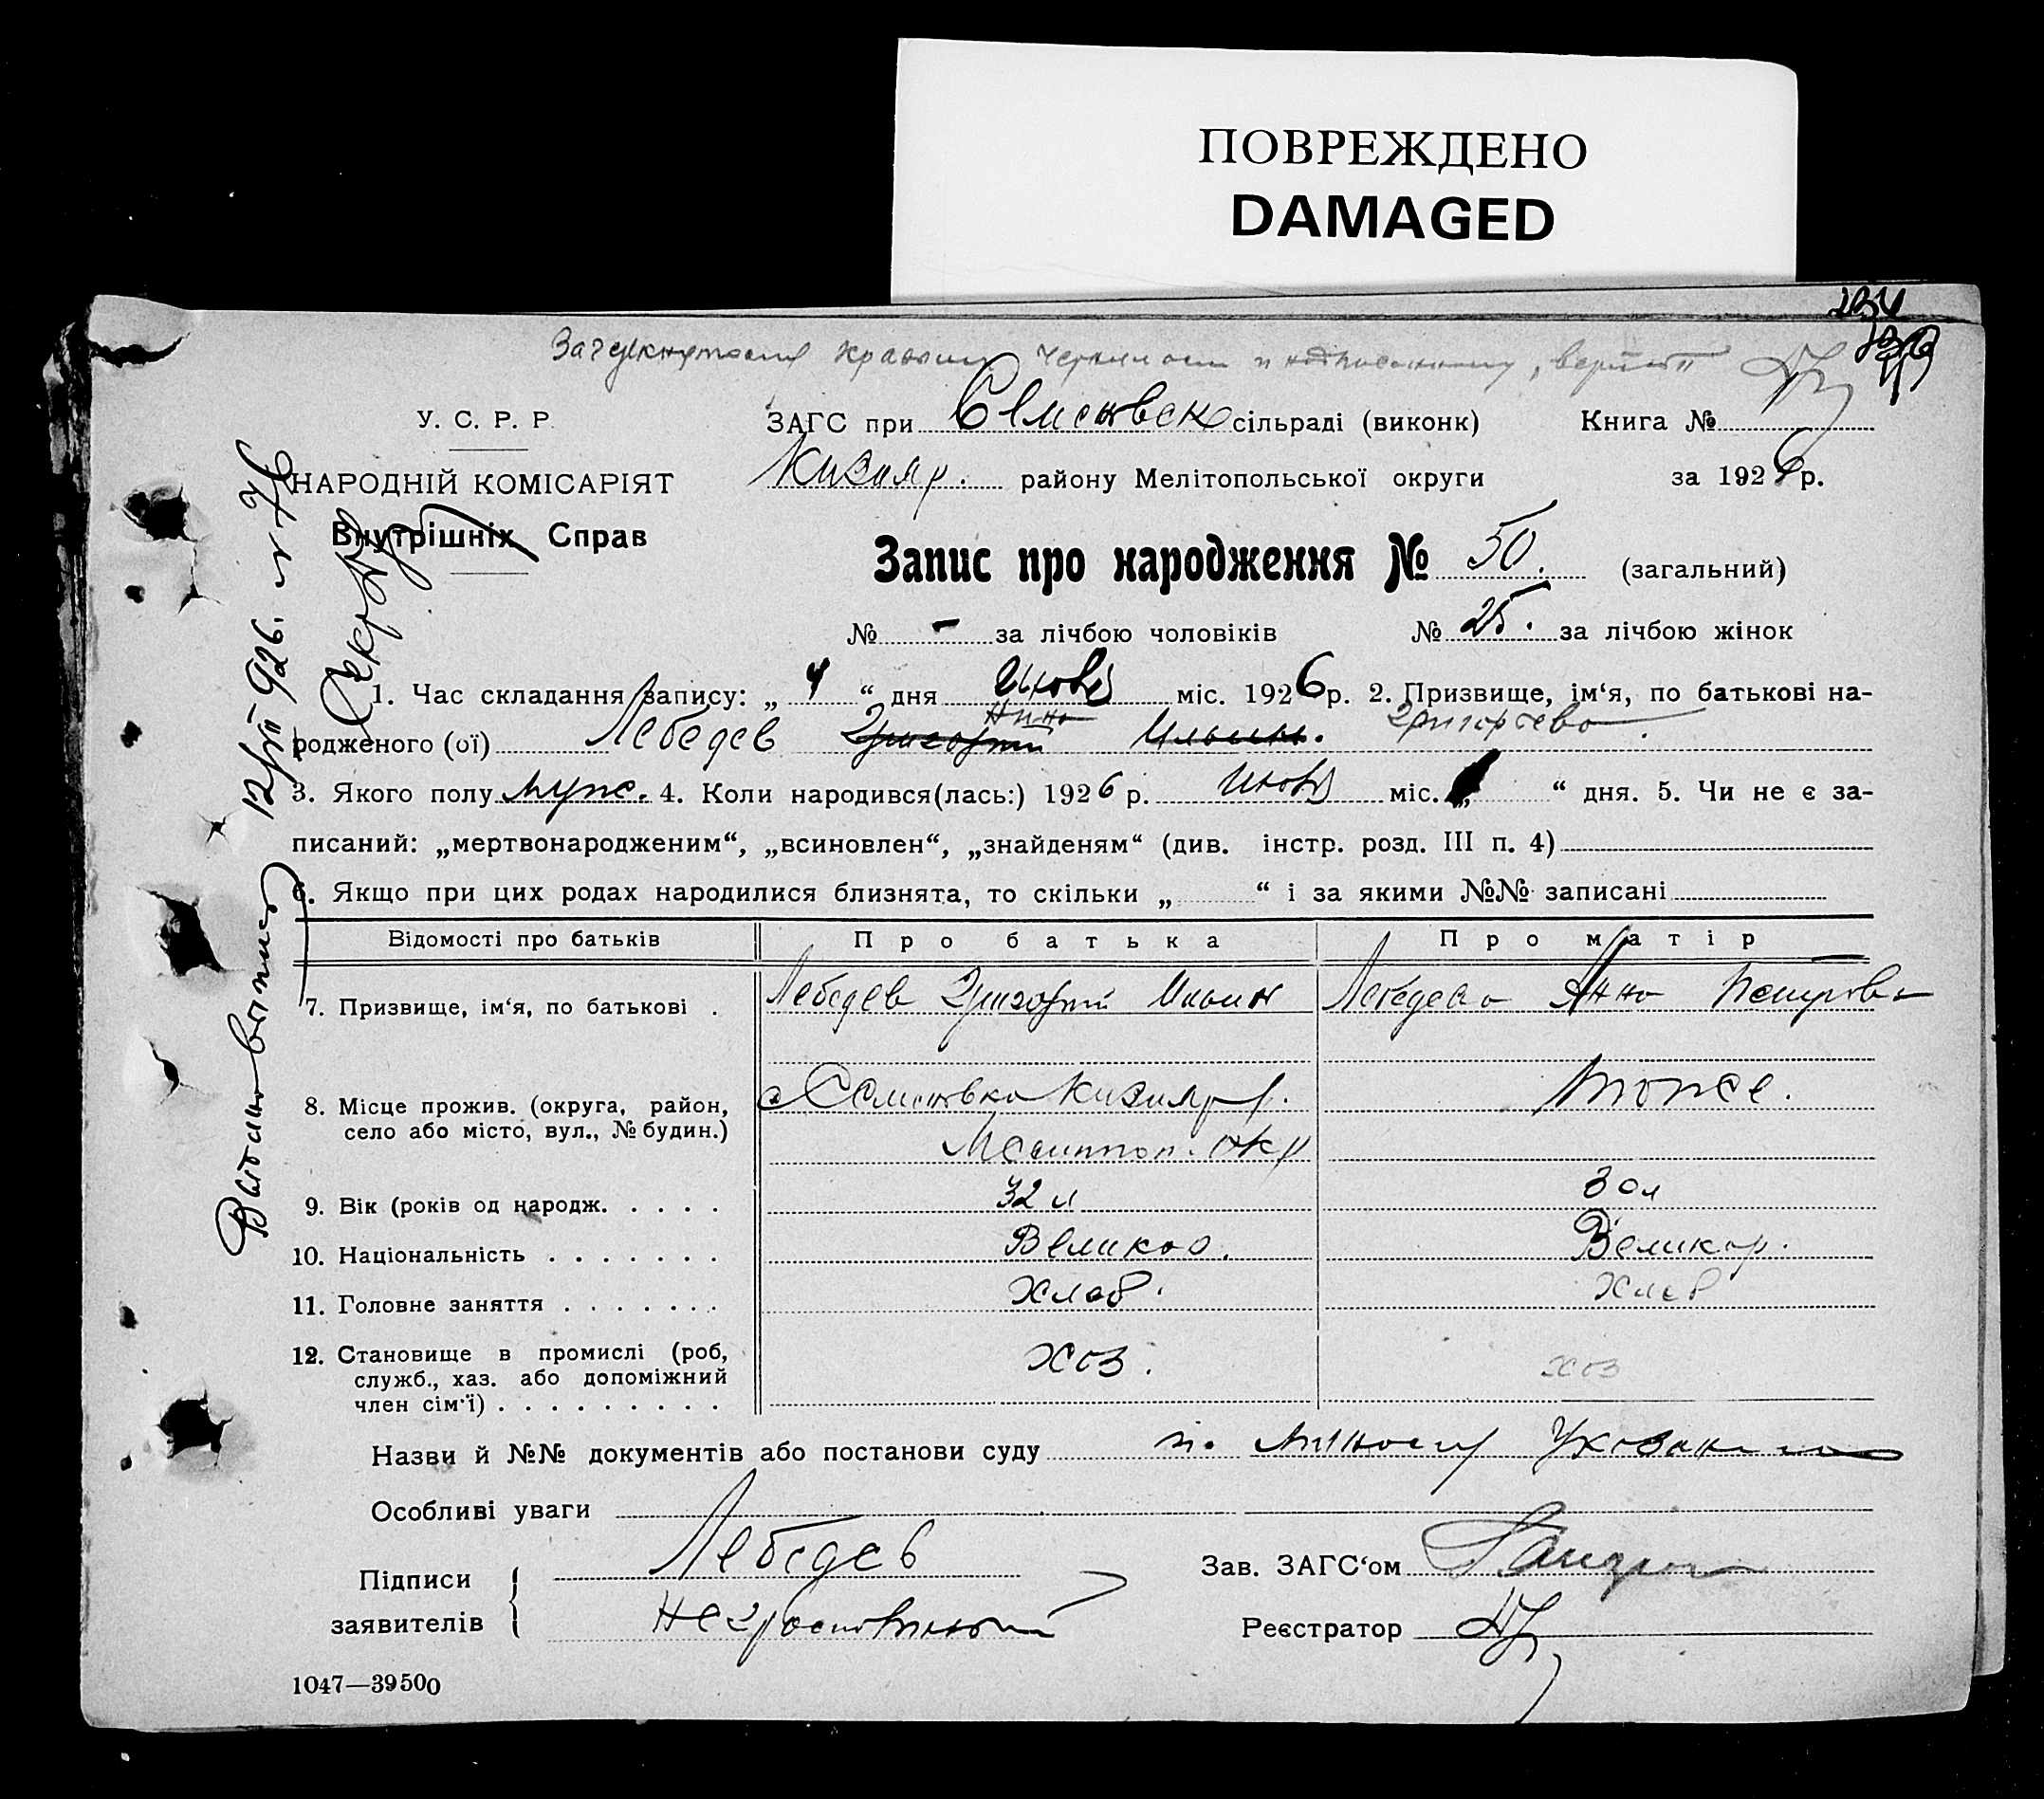 ПОВРЕЖДЕНО
DAMAGED
У. С. Р. Р.
НАРОДНІЙ КОМІСАРІЯТ
Внутрішніх Справ
ЗАГС при сільраді (виконк) Книга №
Кизияр. району Мелітопольської округи за 1926 р.
Запис про народження № 50. (загальний)
№ - за лічбою чоловіків № 25. за лічбою жінок
1. Час складання запису: „ 4 “ дня Июля міс. 1926 р. 2. Призвище, ім‘я, по батькові на-
Нина Григорьева
родженого (ої) Лебедев Григорий Ильин.
3. Якого полу муж. 4. Коли народився(лась:) 1926 р. Июля міс. „ “ дня. 5. Чи не є за-
писаний: „мертвонародженим“, „всиновлен“, „знайденям“ (див. інстр. розд. III п. 4)
6. Якщо при цих родах народилися близнята, то скільки „ “ і за якими №№ записані
Відомості про батьків Про батька Про матір
7. Призвище, ім‘я, по батькові . Лебедев Григорий Ильин Лебедева Анна Петрова
8. Місце прожив. (округа, район, село або місто, вул., № будин.) Кизияр р. Мелитоп. окр тоже.
9. Вік (років од народж. . . . . 32 л 30 л
10. Національність . . . . . . . Великор. Великор.
11. Головне заняття . . . . . . . Хлеб. Хлеб
12. Становище в промислі (роб, служб., хаз. або допоміжний член сім‘ї) . . . . . . . . . хоз. хоз
Назви й №№ документів або постанови суду по личному
Особливі уваги
Підписи заявителів Лебедев
неграмотный
Зав. ЗАГС‘ом
Реєстратор
1047—39500
Выдано выпись 12/VII 926. № 76